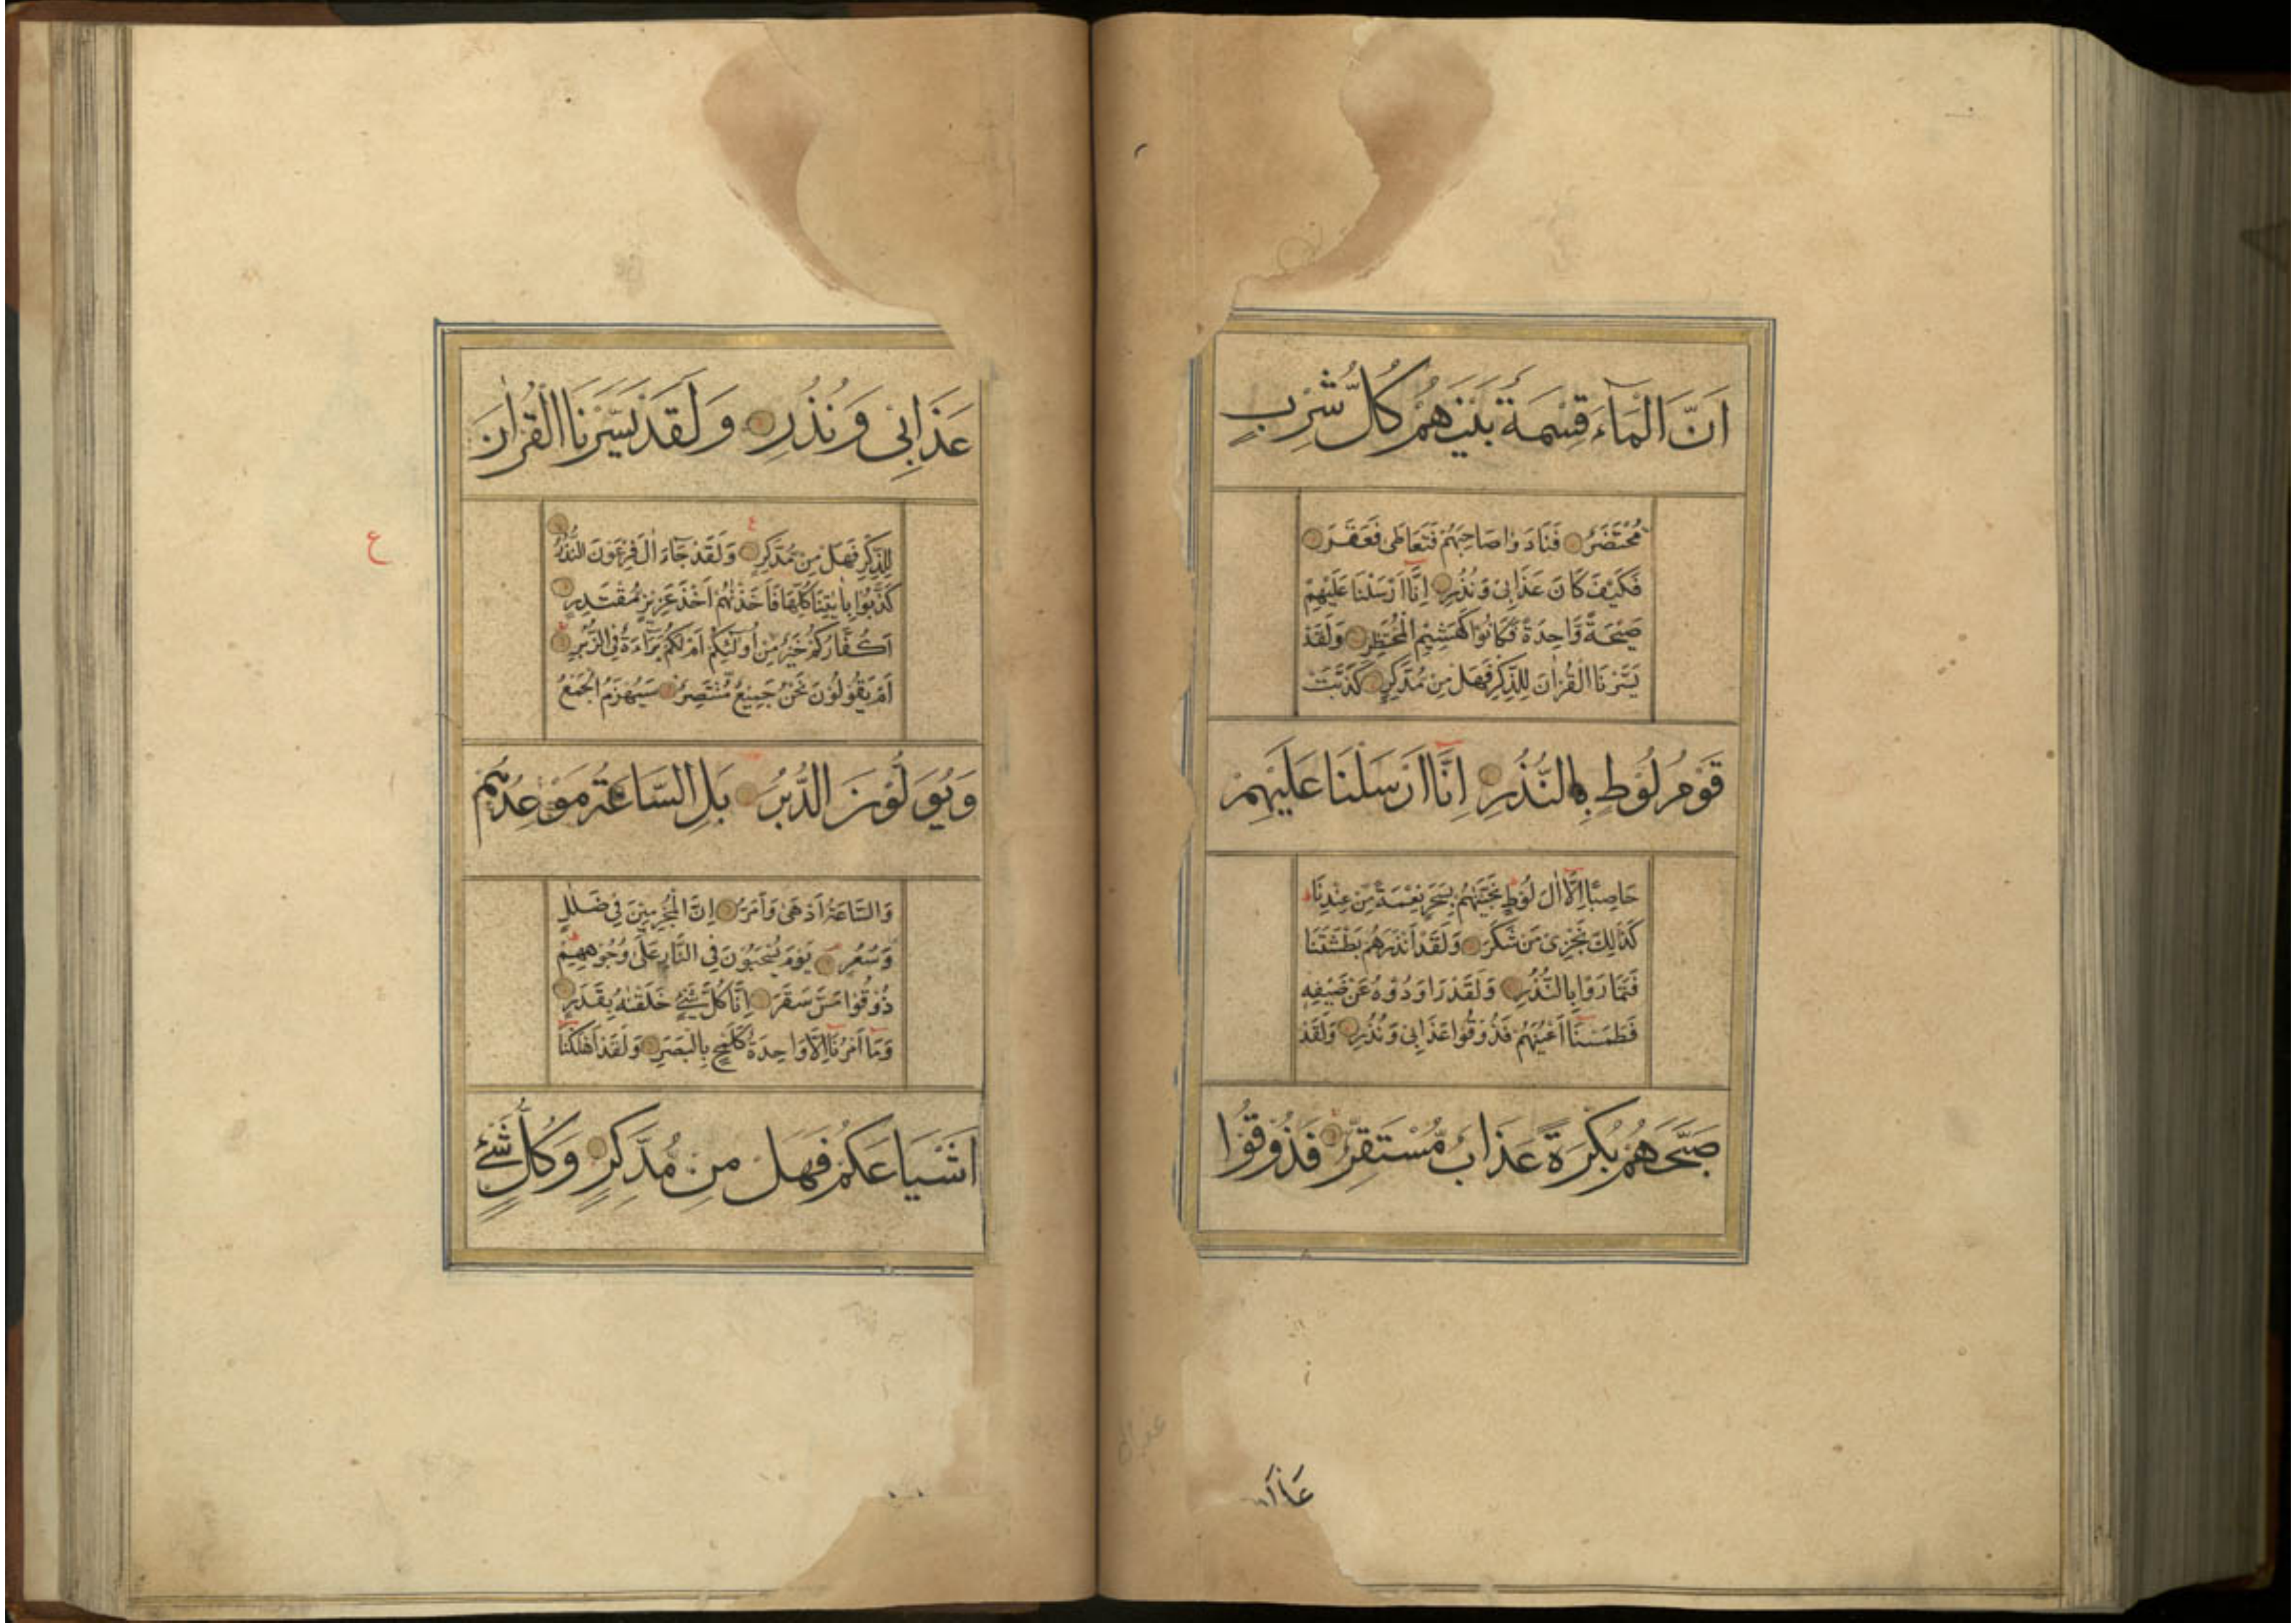 اَنَّ الْمَآءَ قِسْمَةٌ بَيْنَهُمْ كُلُّ شِرْبٍ
مُحْتَضَرٌ فَنَادَوْا صَاحِبَهُمْ فَتَعَاطٰى فَعَقَرَ
فَكَيْفَ كَانَ عَذَابِى وَنُذُرِ اِنَّا اَرْسَلْنَا عَلَيْهِمْ
صَيْحَةً وَّاحِدَةً فَكَانُوْا كَهَشِيْمِ الْمُحْتَظِرِ وَلَقَدْ
يَسَّرْنَا الْقُرْاٰنَ لِلذِّكْرِ فَهَلْ مِنْ مُدَّكِرٍ كَذَّبَتْ
قَوْمُ لُوْطٍ بِالنُّذُرِ اِنَّا اَرْسَلْنَا عَلَيْهِمْ
حَاصِبًا اِلَّا اٰلَ لُوْطٍ نَجَّيْنٰهُمْ بِسَحَرٍ نِعْمَةً مِّنْ عِنْدِنَا
كَذٰلِكَ نَجْزِىْ مَنْ شَكَرَ وَلَقَدْ اَنْذَرَهُمْ بَطْشَتَنَا
فَتَمَارَوْا بِالنُّذُرِ وَلَقَدْ رَاوَدُوْهُ عَنْ ضَيْفِهٖ
فَطَمَسْنَا اَعْيُنَهُمْ فَذُوْقُوْا عَذَابِىْ وَنُذُرِ وَلَقَدْ
صَبَّحَهُمْ بُكْرَةً عَذَابٌ مُّسْتَقِرٌّ فَذُوْقُوْا
عَذَابِىْ وَنُذُرِ وَلَقَدْ يَسَّرْنَا الْقُرْاٰنَ
لِلذِّكْرِ فَهَلْ مِنْ مُدَّكِرٍ وَلَقَدْ جَآءَ اٰلَ فِرْعَوْنَ النُّذُرُ
ع
كَذَّبُوْا بِاٰيٰتِنَا كُلِّهَا فَاَخَذْنٰهُمْ اَخْذَ عَزِيْزٍ مُقْتَدِرٍ
اَكُفَّارُكُمْ خَيْرٌ مِّنْ اُولٰئِكُمْ اَمْ لَكُمْ بَرَآءَةٌ فِى الزُّبُرِ
اَمْ يَقُوْلُوْنَ نَحْنُ جَمِيْعٌ مُّنْتَصِرٌ سَيُهْزَمُ الْجَمْعُ
وَيُوَلُّوْنَ الدُّبُرَ بَلِ السَّاعَةُ مَوْعِدُهُمْ
وَالسَّاعَةُ اَدْهٰى وَاَمَرُّ اِنَّ الْمُجْرِمِيْنَ فِى ضَلٰلٍ
وَّسُعُرٍ يَوْمَ يُسْحَبُوْنَ فِى النَّارِ عَلٰى وُجُوْهِهِمْ
ذُوْقُوْا مَسَّ سَقَرَ اِنَّا كُلَّ شَىْءٍ خَلَقْنٰهُ بِقَدَرٍ
وَمَا اَمْرُنَا اِلَّا وَاحِدَةٌ كَلَمْحٍ بِالْبَصَرِ وَلَقَدْ اَهْلَكْنَا
اَشْيَاعَكُمْ فَهَلْ مِنْ مُّدَّكِرٍ وَكُلُّ شَىْءٍ